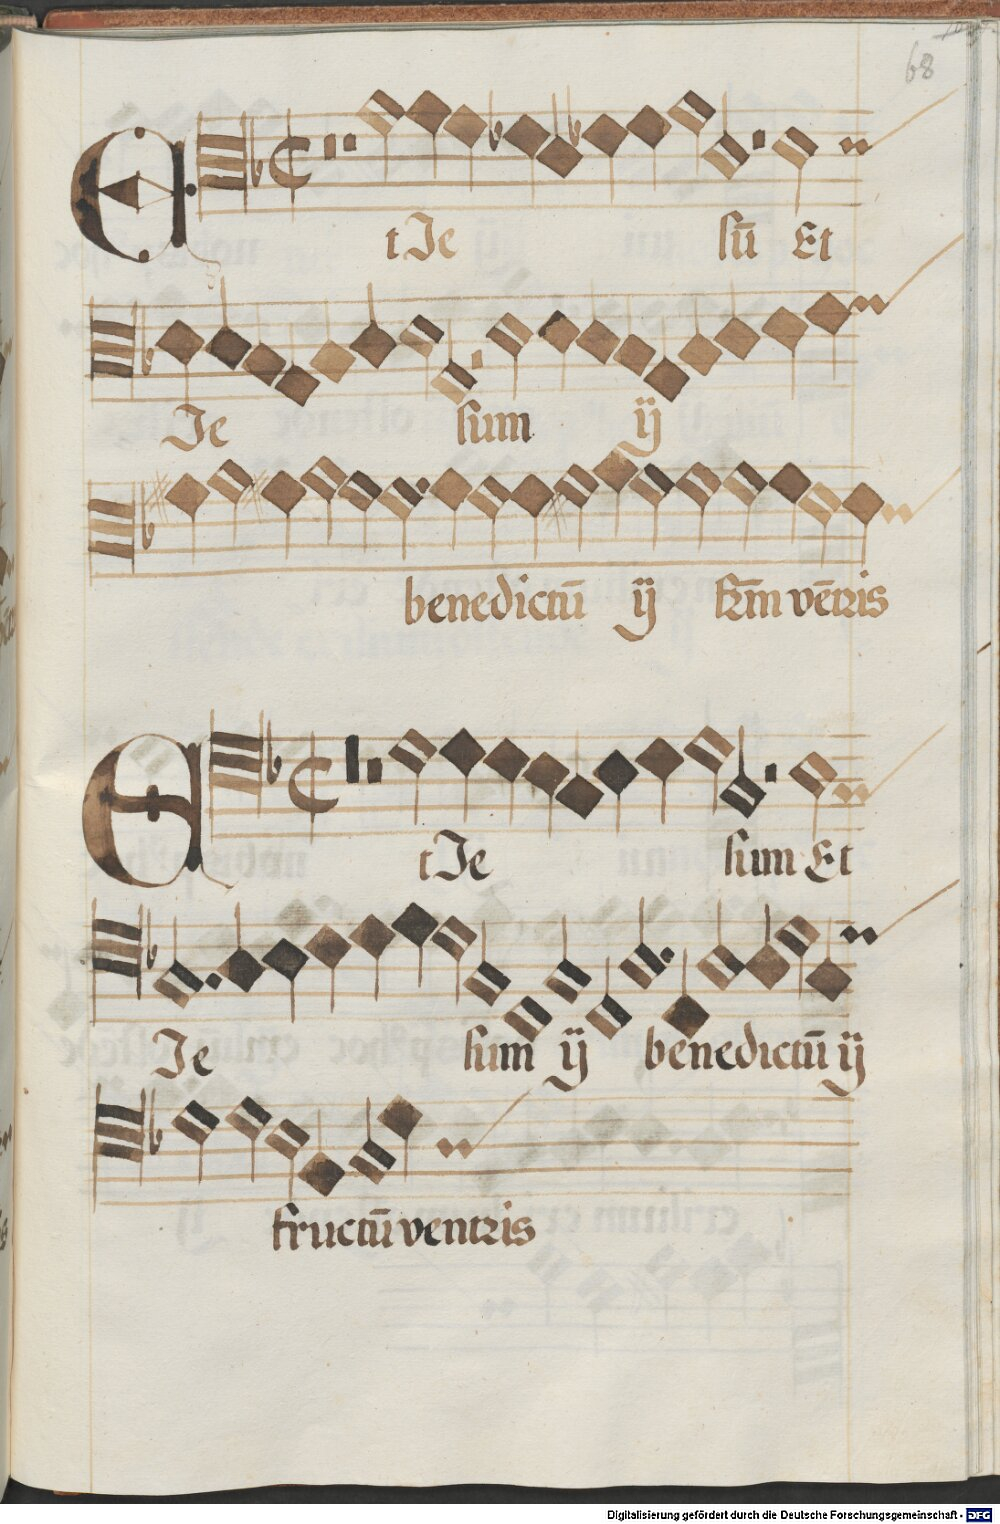 68
Et Je sū Et
Je sum ij
benedictū ij fr̄m vētris
Et Je sum Et
Je sum ij benedictū ij
fructū ventris
Digitalisierung gefördert durch die Deutsche Forschungsgemeinschaft - DFG